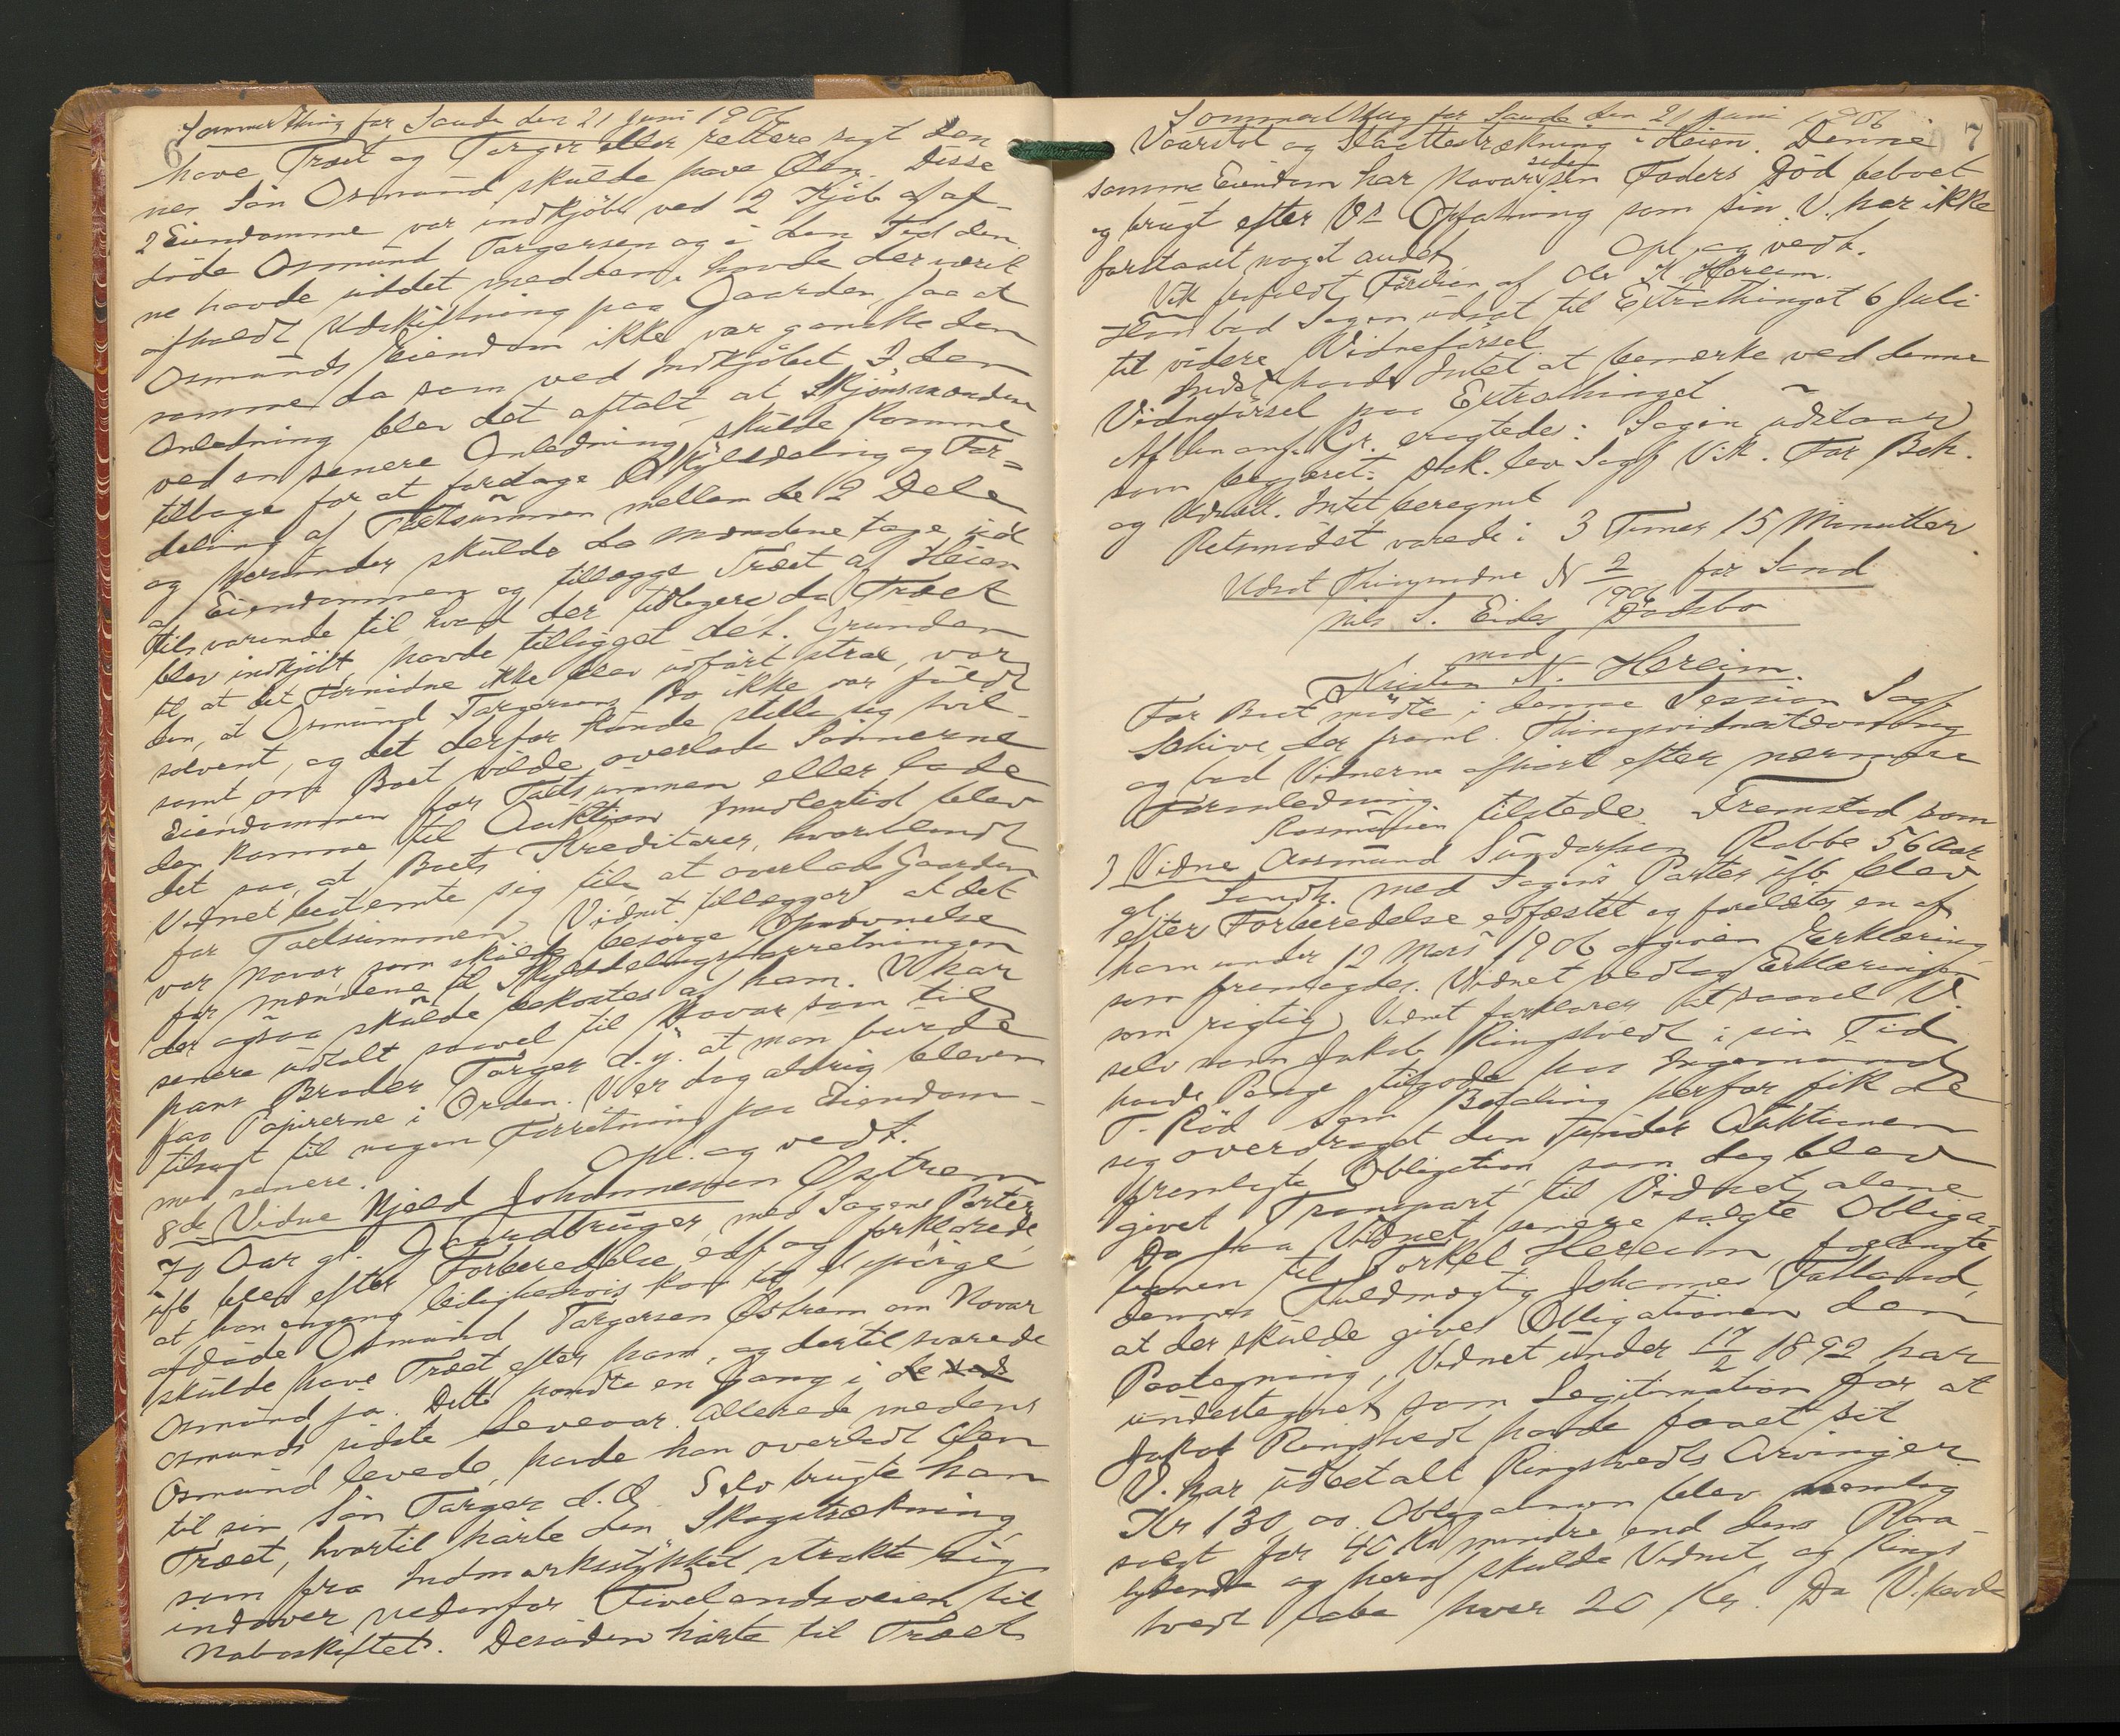 6
SommerThing for Saude den 21 Juni 1906
have Træet og Torger eller rettere sagt den-
nes Sön Osmund skulde have Øen. Disse
2 Eiendomme var indkjöbt ved 2 Kjöb af af-
döde Osmund Torgersen og i den Tid den-
ne havde siddet med dem, havde der været
afholdt Udskiftning paa Gaarden, saa at
Osmunds Eiendom ikke var ganske den
samme da som ved Indkjöbet. I den
Anledning blev det aftalt at Skjönsmændene
ved en senere Anledning skulde komme
tilbage for at foretage Skyldeling og For-
deling af Taxtsummen mellem de 2 Dele
og herunder skulde da Mændene tage ud
af Eiendommen og tillægge Træet af Heien
tilsvarende til hvad der tidligere da Træet
blev indkjöbt, havde tilligget det. Grunden
til, at det Fornödne ikke blev udfört strax, var
den, at Osmund Torgersens Bo ikke var fuldt
solvent, og det derfor kunde stille sig tvil-
somt, om Boet vilde overlade Sönnerne
Eiendommen for Taxtsummen eller lade
den komme til Auktion. Imidlertid blev
det saa, at Boets Kreditorer, hvoriblandt
Vidnet bestemte sig til at overlade Gaarden
for Taxtsummen. Vidnet tillægger at det
var Navar, som skulde besörge Opnævnelse
for Mændene til Skyldelingsforretningen
der ogsaa skulde bekostes af ham. V. har
senere udtalt saavel til Navar som til
hans Broder Torger d.y. at man burde
faa Papirerne i Orden. V. er dog aldrig bleven
tilsagt til nogen Forretning paa Eiendom-
men senere. Opl. og vedt.
8de Vidne Kjeld Johannessen Østrem
70 Aar gl. Gaardbruger, med Sagens Parter
usb. blev efter Forberedelse edf. og forklarede,
at han engang leilighedsvis kom til at spörge
afdöde Osmund Torgersen Østrem om Navar
skulde have Træet efter ham, og dertil svarede
Osmund ja. Dette hændte en Gang i de
Osmunds sidste Leveaar. Allerede medens
Osmund levede, havde han overladt Øen
til sin Sön Torger d.Æ. Selv brugte han
Træet, hvortil hörte den Skogstrækning,
som fra Indmarksstykket strakte sig
indover nedenfor Tivelandsveien til
Naboskiftet. Desuden hörte til Træet
7
SommerThing for Saude den 21 Juni 1906
Vaarstöl og Slaattestrækning i Heien. Denne
samme Eiendom har Navar siden sin Faders Död beboet
og brugt efter Vs Opfatning som sin. V. har ikke
forstaaet noget andet. Opl. og vedt.
Vik frafaldt Förelsen af Ole K. Hereim.
Han bad Sagen udsat til Extrathinget 6 Juli
til videre Vidneförsel
Indst. havde Intet at bemærke ved denne
Vidneförsel paa Extrathinget
Af den anf. Gr. eragtedes: Sagen udstaar
som begjæret. Dok. lev. Sagf. Vik. For Bek.
og Udsætt. Intet beregnet
Retsmödet varede i 3 Timer 15 Minutter.
Udsat Thingvidne N 2/1906 for Sand
Nils S. Eides Dödsbo
mod
Kristen N. Hereim.
For Boet mödte i denne Session Sagf.
Schive, der freml. Thingsvidnestævning
og bad Vidnerne afhört efter nærmere
Fornledning.
Rasmussen tilstede. Fremstod som
1 Vidne Aasmund Sundersen Rabbe 56 Aar
gl. Landh. med Sagens Parter usb. blev
efter Forberedelse edfæstet og forelagt en af
ham under 12 Mars 1906 afgiven Erklæring
som fremlagdes. Vidnet vedtog Erklæringen
som rigtig. Vidnet forklarer at saavel V.
selv som Jakob Ringstvedt i sin Tid
havde Penge tilgode hos Ingemund
T. Röd. Som Betaling herfor fik de
sig overdraget den under Auktionen
fremlagte Obligation, som dog blev
givet Transport til Vidnet alene.
Da saa Vidnet senere solgte Obliga-
tionen til Torkel Hereim, forlangte
dennes Fuldmægtig Johannes Fatland,
at der skulde gives Obligationen den
Paategning, Vidnet under 17/2 1892 har
undertegnet som Legitimation for at
Jakob Ringstvedt havde faaet sit
V. har udbetalt Ringstvedts Arvinger
Kr 130,00. Obligationen blev nemlig
solgt for 40 Kr mindre end dens Paa-
lydende og heraf skulde Vidnet og Ring-
tvedt tabe hver 20 Kr. Da V. havde